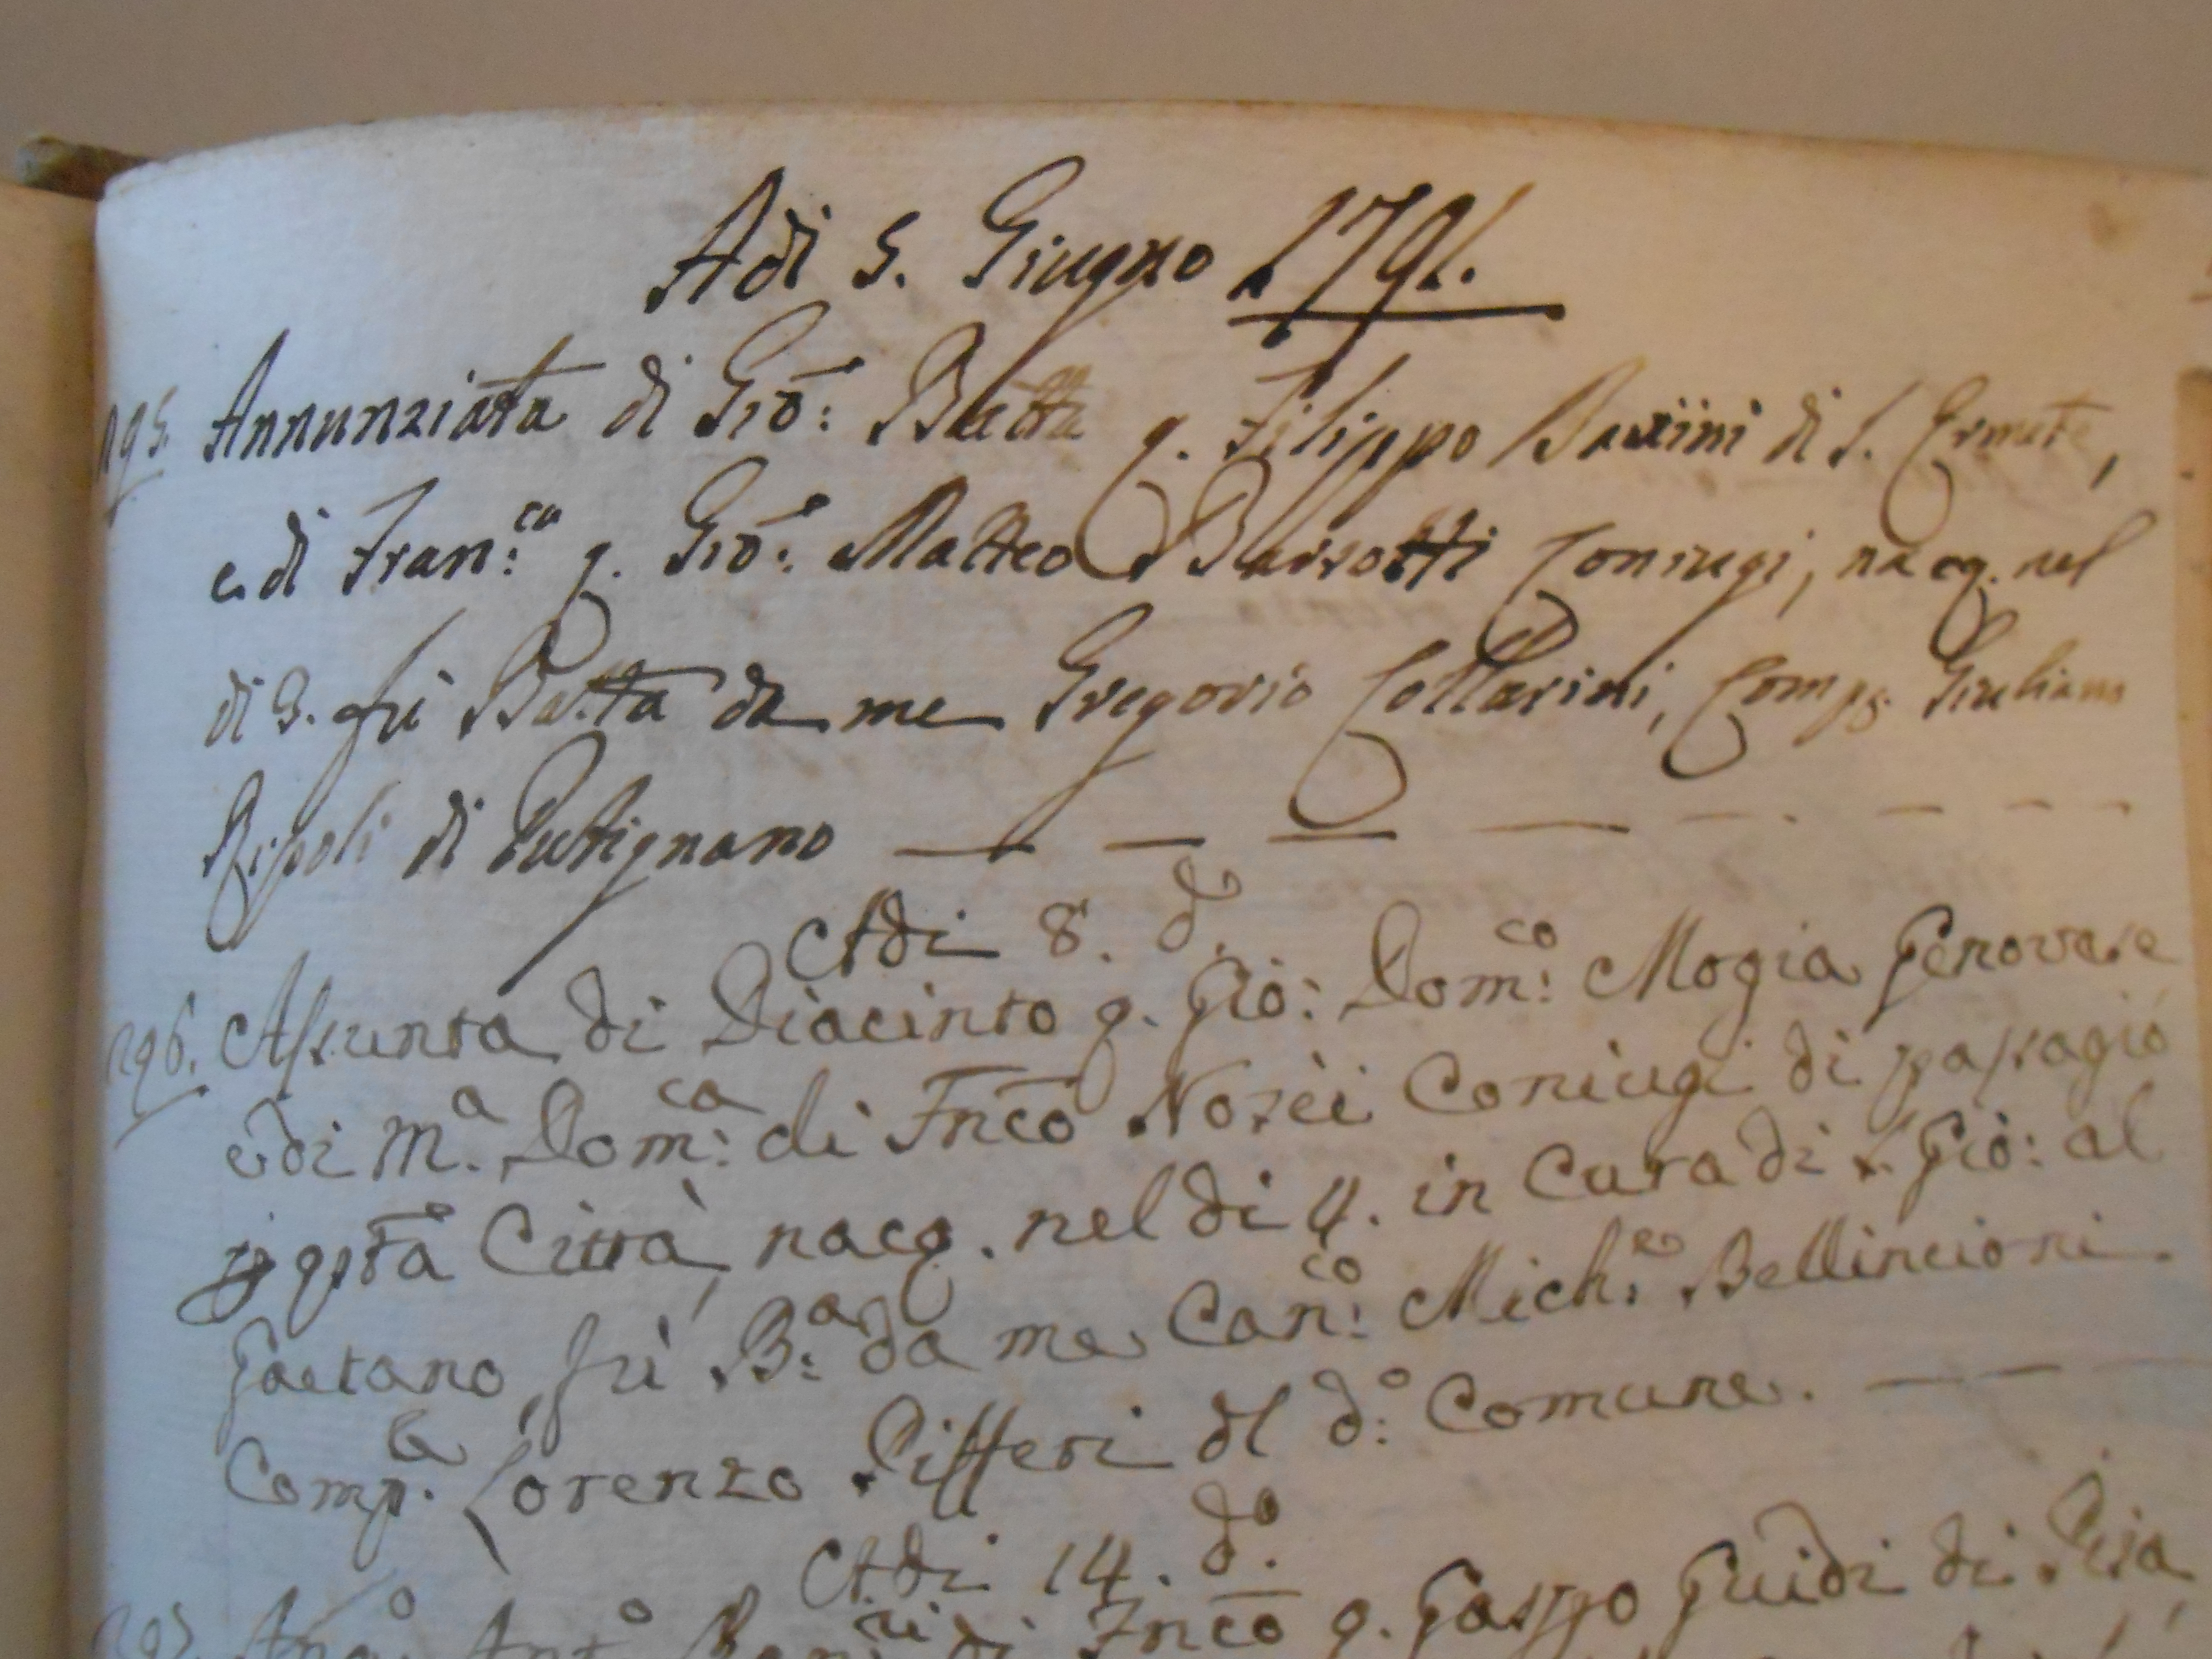 Adi 5. Giugno 1791.
295. Annunziata di Gio: Batta q. Filippo Barsini di S. Ermete,
e di Fran:ca q. Gio: Matteo Barsotti Coniugi, nacq. nel
di 3. fù Batta da me Gregorio Collarini, Comp. Giuliano
Ripoli di Putignano
Adi 8. do.
296. Assunta di Diacinto q. Gio: Dom:co Mogia Genovese
e di Ma. Dom:ca di Fnco Nozei Coniugi di passagio
p qsta Città, nacq. nel di 4. in Cura di S. Gio: al
Gaetano, fù B:a da me Can:co Mich:e Bellincioni.
Comp. Lorenzo Pifferi dl d:o Comune.
Adi 14. do.
297. Fnco q. Gasppo Guidi di Pisa,